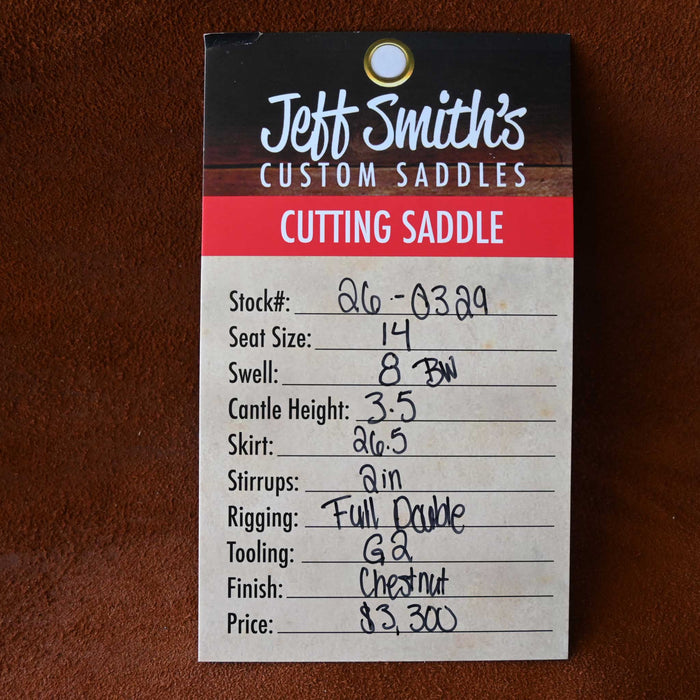 Jeff Smith's
CUSTOM SADDLES
CUTTING SADDLE
Stock#: 26-0329
Seat Size: 14
Swell: 8 BW
Cantle Height: 3.5
Skirt: 26.5
Stirrups: 2in
Rigging: Full Double
Tooling: G2
Finish: Chestnut
Price: $3,300